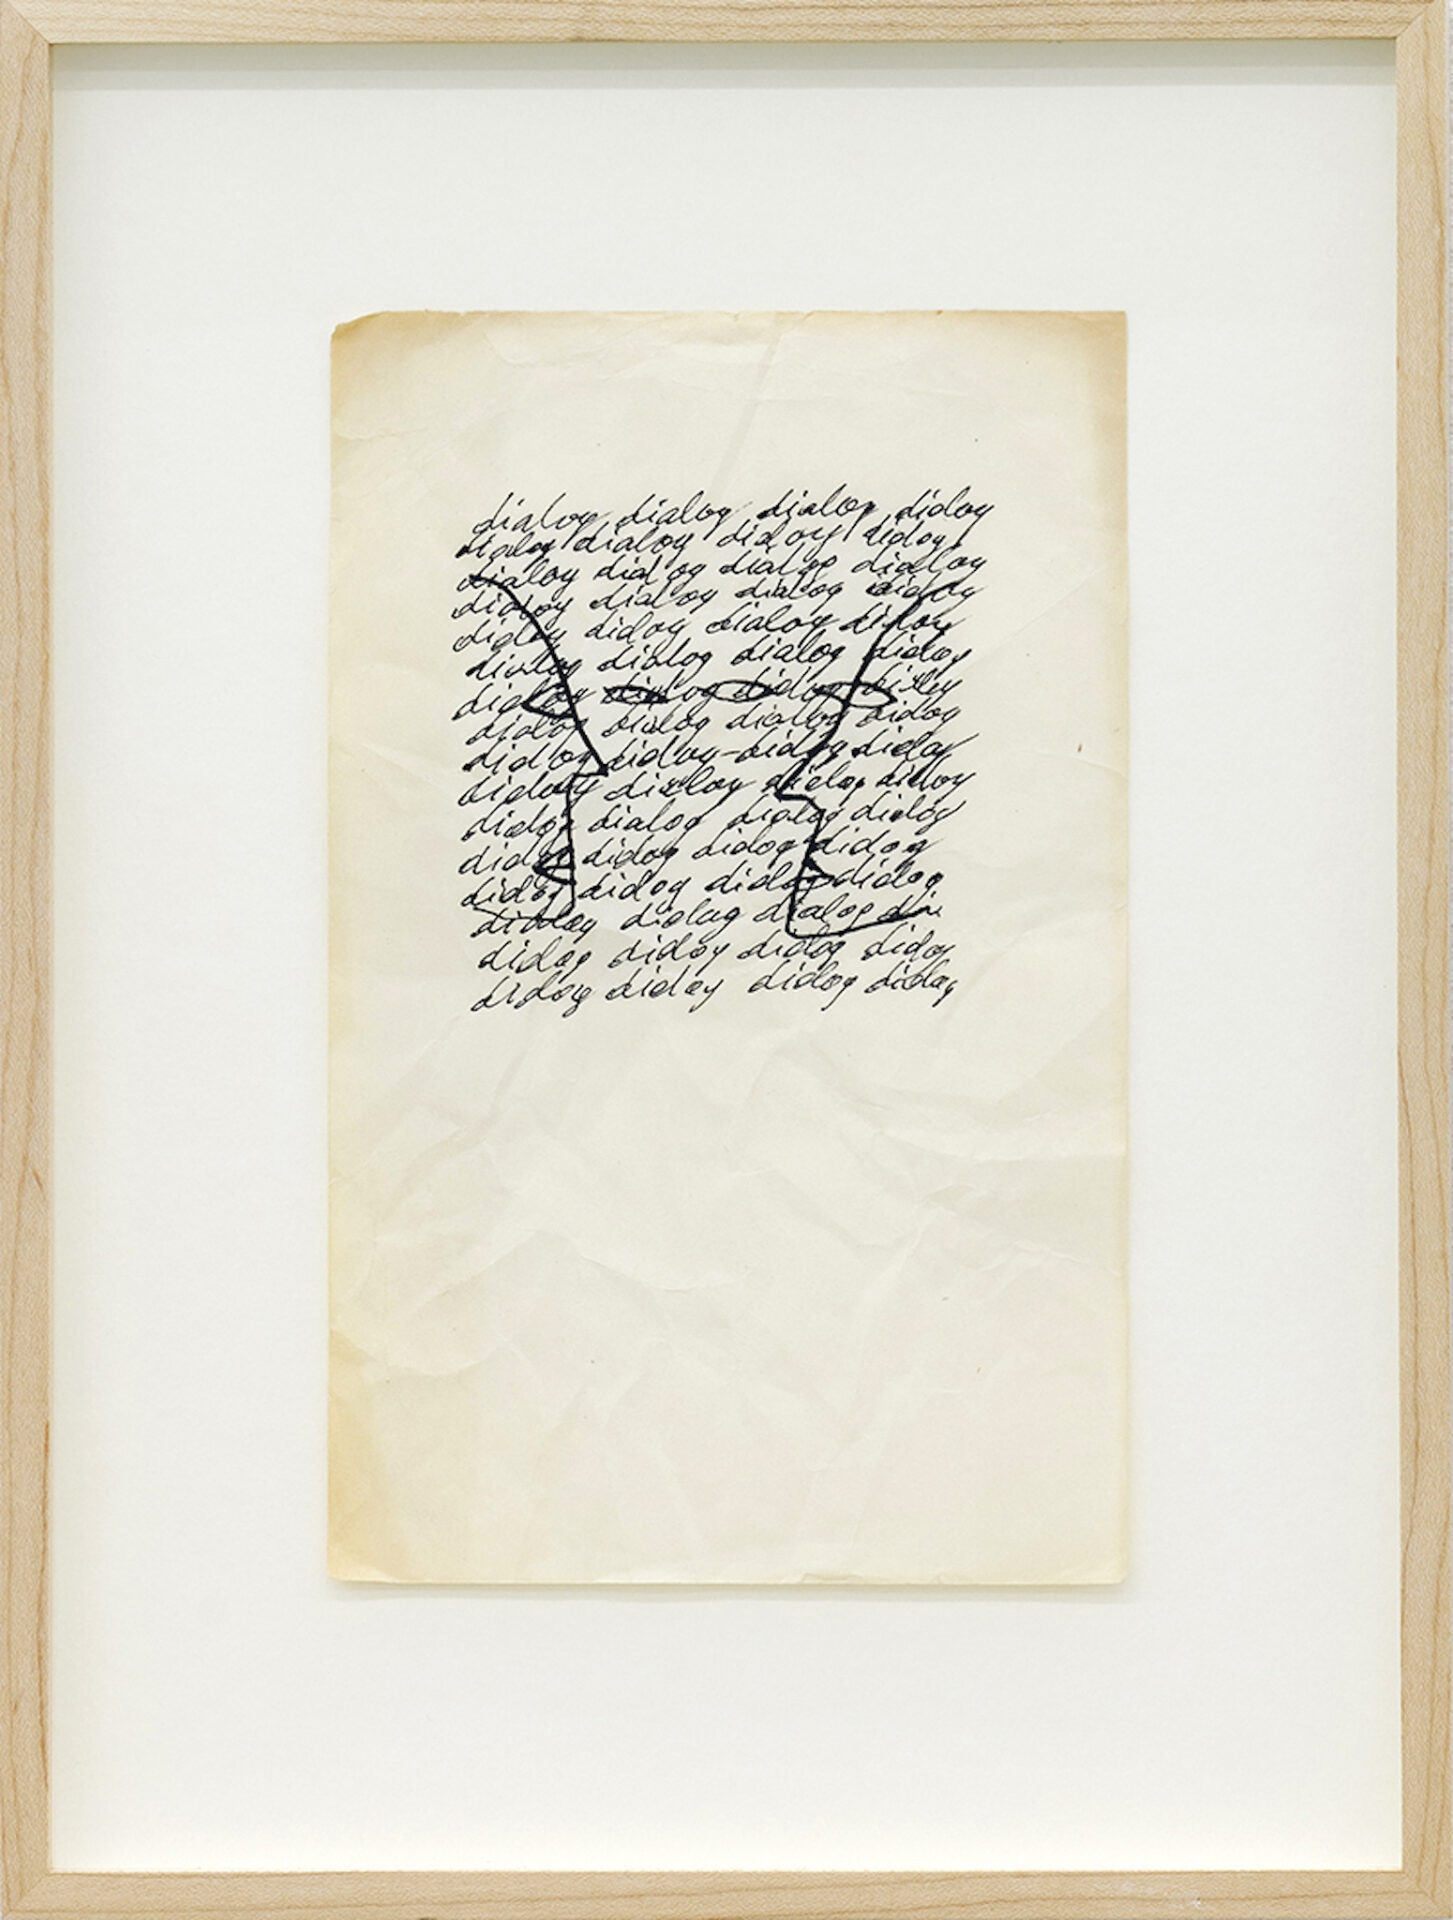 dialog dialog dialog dialog
dialog dialog dialog dialog
dialog dialog dialog dialog
dialog dialog dialog dialog
dialog dialog dialog dialog
dialog dialog dialog dialog
dialog dialog dialog dialog
dialog dialog dialog dialog
dialog dialog-dialog dialog
dialog dialog dialog dialog
dialog dialog dialog dialog
dialog dialog dialog dialog
dialog dialog dialog dialog
dialog dialog dialog dia
dialog dialog dialog dialog
dialog dialog dialog dialog